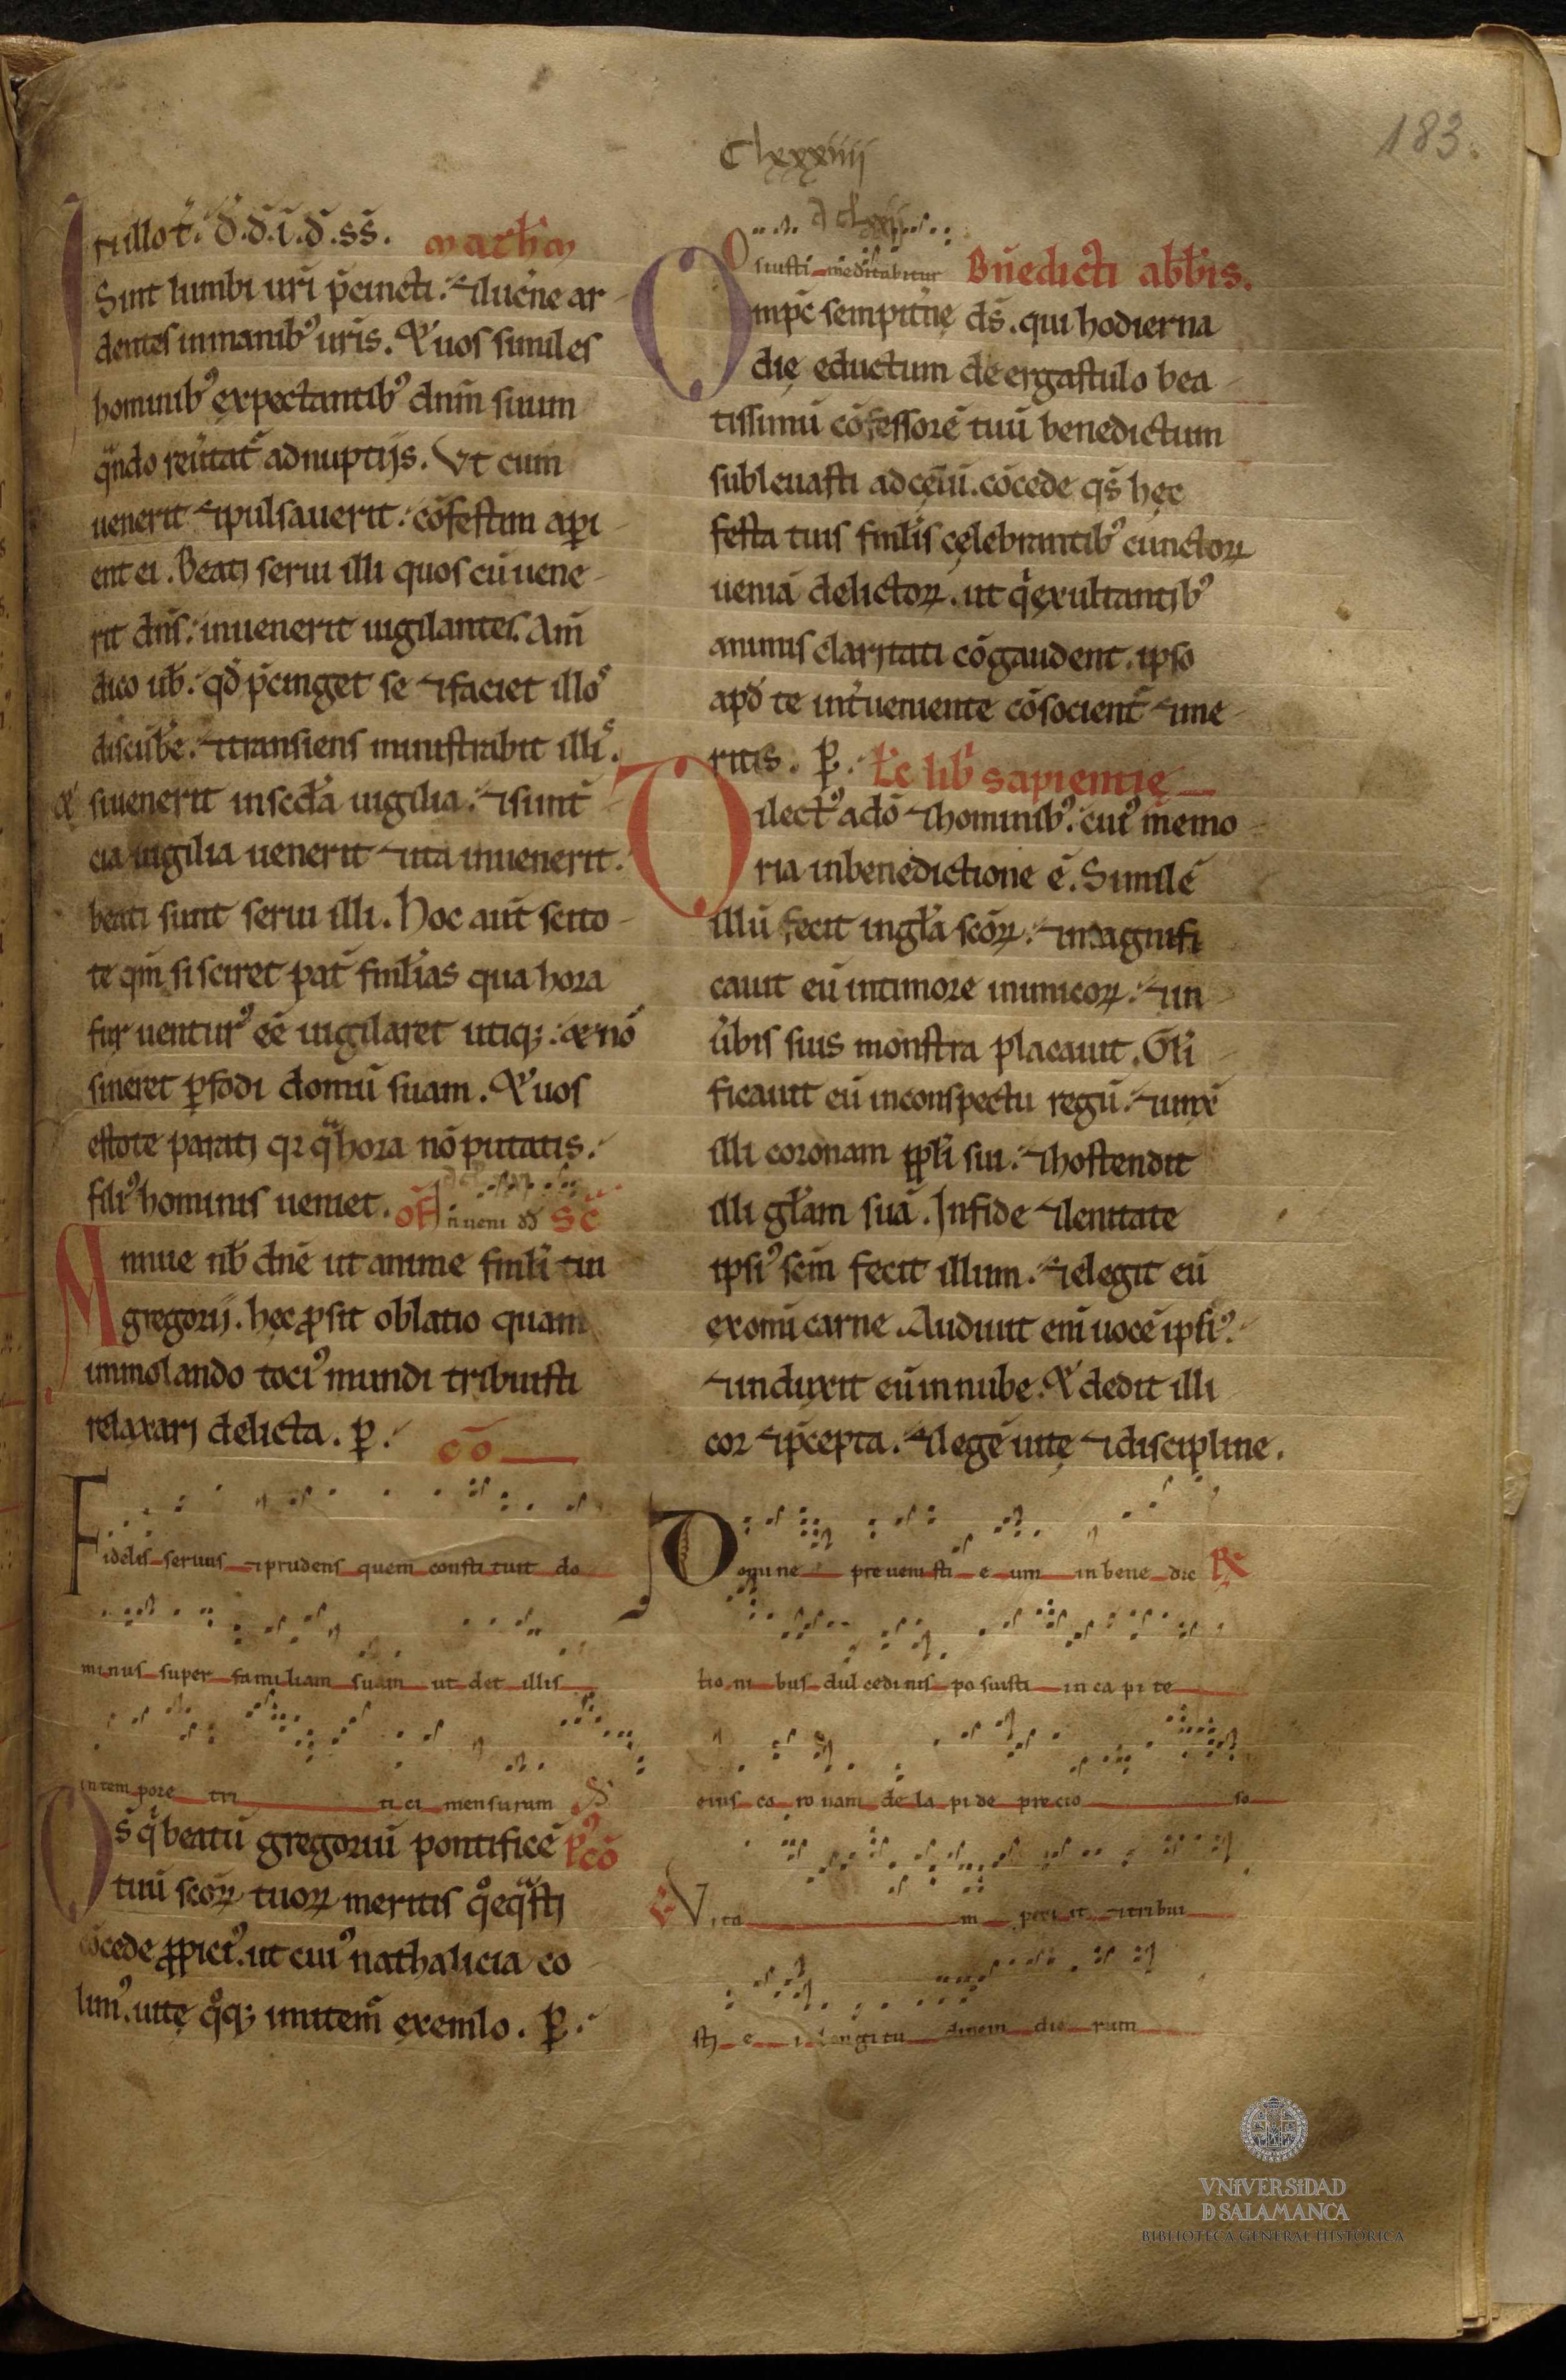 183
Clxxxiiii
In illo t̄. d̄. d̄. ī. d̄. ss̄. Math̄m
Sint lumbi ur̄i p̄cincti. ⁊ lucn̄e ar
dentes in manib⁹ ur̄is. Et uos similes
hominib⁹ expectantib⁹ dn̄m suum
qͣndo reũtat᷑ ad nuptijs. Vt cum
uenerit ⁊ pulsauerit. cōfestim ap̱i
ent ei. Beati serui illi quos cū uene
rit dn̄s. inuenerit uigilantes. Am̄
dico ub̄. qd̄ p̄cinget se ⁊ faciet illoˢ
discūbe. ⁊ transiens ministrabit illiˢ.
Et si uenerit in secd̄a uigilia. ⁊ si in t̄
cia uigilia uenerit ⁊ ita inuenerit.
beati sunt serui illi. Hoc aut̄ scito
te qm̄ si sciret pat̄ fmilias qua hora
fur uentur⁹ eē uigilaret utiq;. et nō
sineret p̱fodi domū suam. Et uos
estote parati qꝛ qͣ hora nō putatis.
fili⁹ hominis ueniet. of̄ Inueni dd̄ Sc̄
Annue nb̄ dn̄e ut anime fml̄i tui
gregorij. hęc ꝓsit oblatio quam
immolando toci⁹ mundi tribuisti
relaxari delicta. p̱. cō
Fidelis seruus ⁊ prudens quem consti tuit do
minus super familiam suam ut det illis
in tem pore tri ti ci mensuram
Ds̄ qͥ beatū gregoriū pontificē p⁹ cō
tuū sc̄oꝝ tuoꝝ meritis qͦeqͣsti
cōcede ꝓpici⁹. ut cui⁹ nathalicia co
lim⁹. uitę qͦq; imitem᷑ exemlo. p̱.
Os iusti meditabitur Bn̄edicti abb̄is.
Omp̄c sempit̄nę ds̄. qui hodierna
dię eductum de ergastulo bea
tissimū cōfessorē tuū benedictum
subleuasti ad cęlū. cōcede qs̄ hęc
festa tuis fml̄is cęlebrantib⁹ cunctoꝝ
ueniā delictoꝝ. ut qͥ exultantib⁹
animis claritati cōgaudent. ipso
apd̄ te int̄ueniente cōsocient᷑ ⁊ me
ritis. p̱. Lc̄ lib̄ sapientię
Dilect⁹ a dō ⁊ hominib⁹. cui⁹ memo
ria in benedictione ē. Similē
illū fecit in gl̄a sc̄oꝝ. ⁊ magnifi
cauit eū in timore inimicoꝝ. ⁊ in
ūbis suis monstra placauit. Gl̄i
ficauit eū in conspectu regū. ⁊ iunx̄
illi coronam ppl̄i sui. ⁊ hostendit
illi gl̄am suā. In fide ⁊ lenitate
ipsi⁹ sc̄m fecit illum. ⁊ elegit eū
ex omī carne. Audiuit enī uocē ipsi⁹.
⁊ induxit eū in nube. Et dedit illi
cor ⁊ p̄cepta. ⁊ legē uitę ⁊ discipline.
Domi ne pre ueni sti e um in bene dic
tio ni bus dul cedi nis po suisti in ca pi te
eius co ro nam de la pi de precio so
Vita m peti it ⁊ tribui
sti e i longi tu dinem die rum
VNiVERSiDAD
D SALAMANCA
BIBLIOTECA GENERAL HISTÓRICA